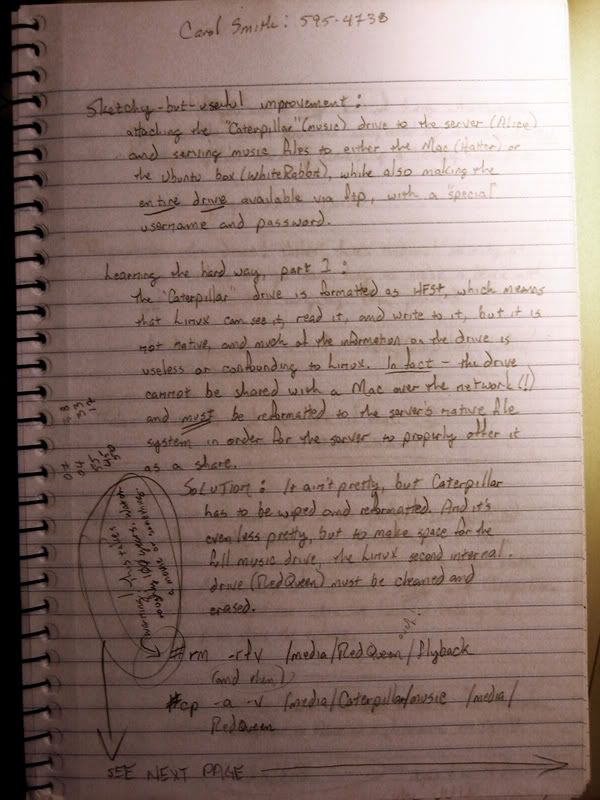 Carol Smith: 595-4738
Sketchy-but-useful improvement:
attaching the "Caterpillar" (music) drive to the server (Alice)
and serving music files to either the Mac (Hatter) or
the Ubuntu box (WhiteRabbit), while also making the
entire drive available via ftp, with a "special"
username and password.
Learning the hard way, part 1:
The "Caterpillar" drive is formatted as HFS+, which means
that Linux can see it, read it, and write to it, but it is
not native, and much of the information on the drive is
useless or confounding to Linux. In fact - the drive
cannot be shared with a Mac over the network (!)
and must be reformatted to the server's native file
system in order for the server to properly offer it
as a share.
SOLUTION: It ain't pretty, but Caterpillar
has to be wiped and reformatted. And it's
even less pretty, but to make space for the
full music drive, the Linux second internal
drive (RedQueen) must be cleaned and
erased.
warning:
#rm -rfv /media/RedQueen/flyback
(and then)
#cp -a -v /media/Caterpillar/music /media/
RedQueen
SEE NEXT PAGE